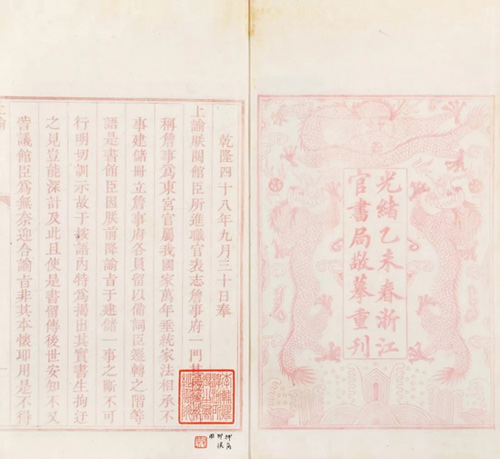 光緒乙未春浙江
官書局敬摹重刊
乾隆四十八年九月三十日奉
上諭朕閱館臣所進職官表志詹事府一門
稱詹事爲東宮官屬我國家萬年垂統家法相承不
事建儲冊立詹事府各員留以備詞臣遷轉之階等
語是書館臣因朕前降諭旨于建儲一事之斷不可
行明切訓示故于按語內特爲揭出其實書生拘迂
之見豈能深計及此且使是書留傳後世安知不又
訾議館臣爲無奈迎合諭旨非其本懷耶用是不得